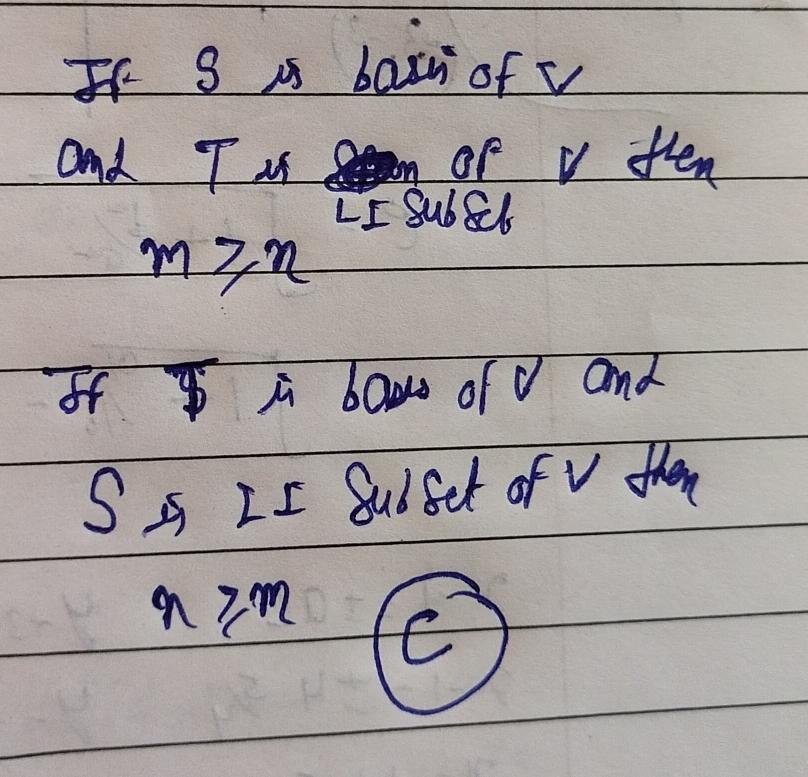 If S is basis of V
and T is of V then
LI Subset
m ≥ n
If T is basis of V and
S is LI Subset of V then
n ≥ m
C